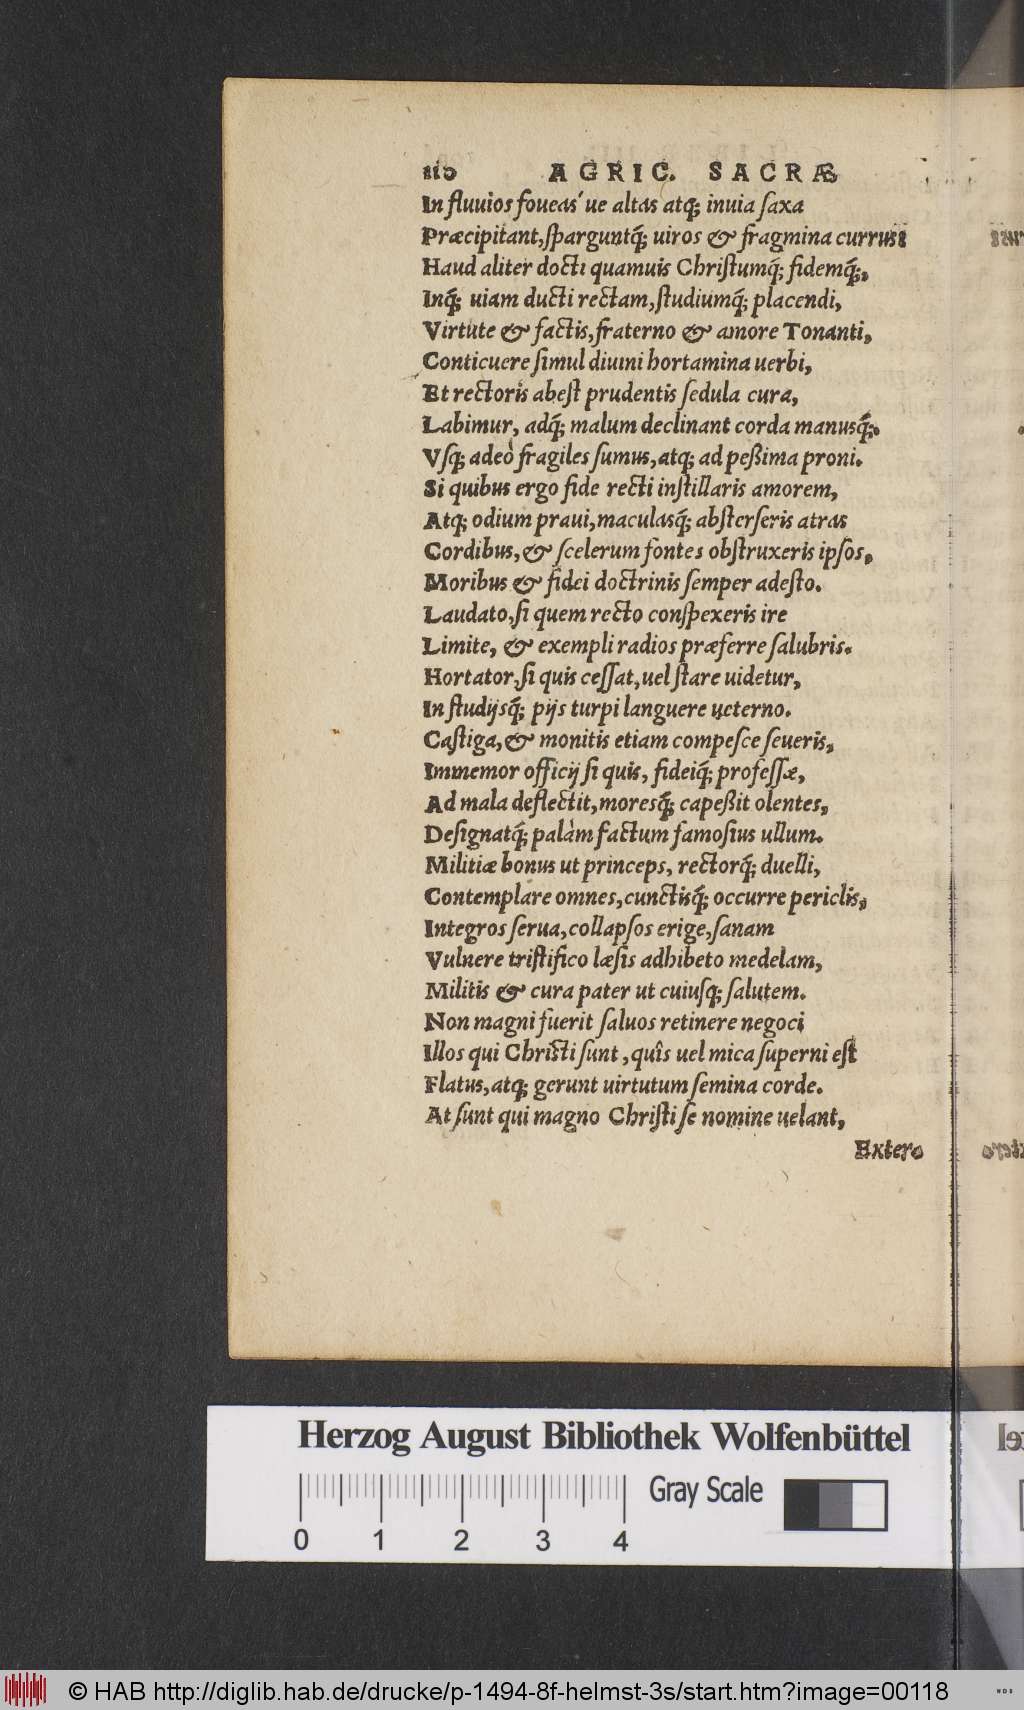 110 AGRIC. SACRÆ
In fluuios foueas´ue altas atq; inuia ſaxa
Præcipitant, ſparguntq́; uiros & fragmina currus:
Haud aliter docti quamuis Chriſtumq́; fidemq́;,
Inq́; uiam ducti rectam, ſtudiumq́; placendi,
Virtute & factis, fraterno & amore Tonanti,
Conticuere ſimul diuini hortamina uerbi,
Et rectoris abeſt prudentis ſedula cura,
Labimur, adq́; malum declinant corda manusq́;.
Vſq; adeò fragiles ſumus, atq; ad peßima proni.
Si quibus ergo fide recti inſtillaris amorem,
Atq; odium praui, maculasq́; abſterſeris atras
Cordibus, & ſcelerum fontes obſtruxeris ipſos,
Moribus & fidei doctrinis ſemper adeſto.
Laudato, ſi quem recto conſpexeris ire
Limite, & exempli radios præferre ſalubris.
Hortator, ſi quis ceſſat, uel ſtare uidetur,
In ſtudijsq́; pijs turpi languere ueterno.
Caſtiga, & monitis etiam compeſce ſeueris,
Immemor officij ſi quis, fideiq́; profeſſæ,
Ad mala deflectit, moresq́; capeßit olentes,
Deſignatq́; palàm factum famoſius ullum.
Militiæ bonus ut princeps, rectorq́; duelli,
Contemplare omnes, cunctisq́; occurre periclis,
Integros ſerua, collapſos erige, ſanam
Vulnere triſtifico læſis adhibeto medelam,
Militis & cura pater ut cuiuſq; ſalutem.
Non magni fuerit ſaluos retinere negoci
Illos qui Chriſti ſunt, quîs uel mica ſuperni eſt
Flatus, atq; gerunt uirtutum ſemina corde.
At ſunt qui magno Chriſti ſe nomine uelant,
Extero
Herzog August Bibliothek Wolfenbüttel
0 1 2 3 4 Gray Scale
© HAB http://diglib.hab.de/drucke/p-1494-8f-helmst-3s/start.htm?image=00118